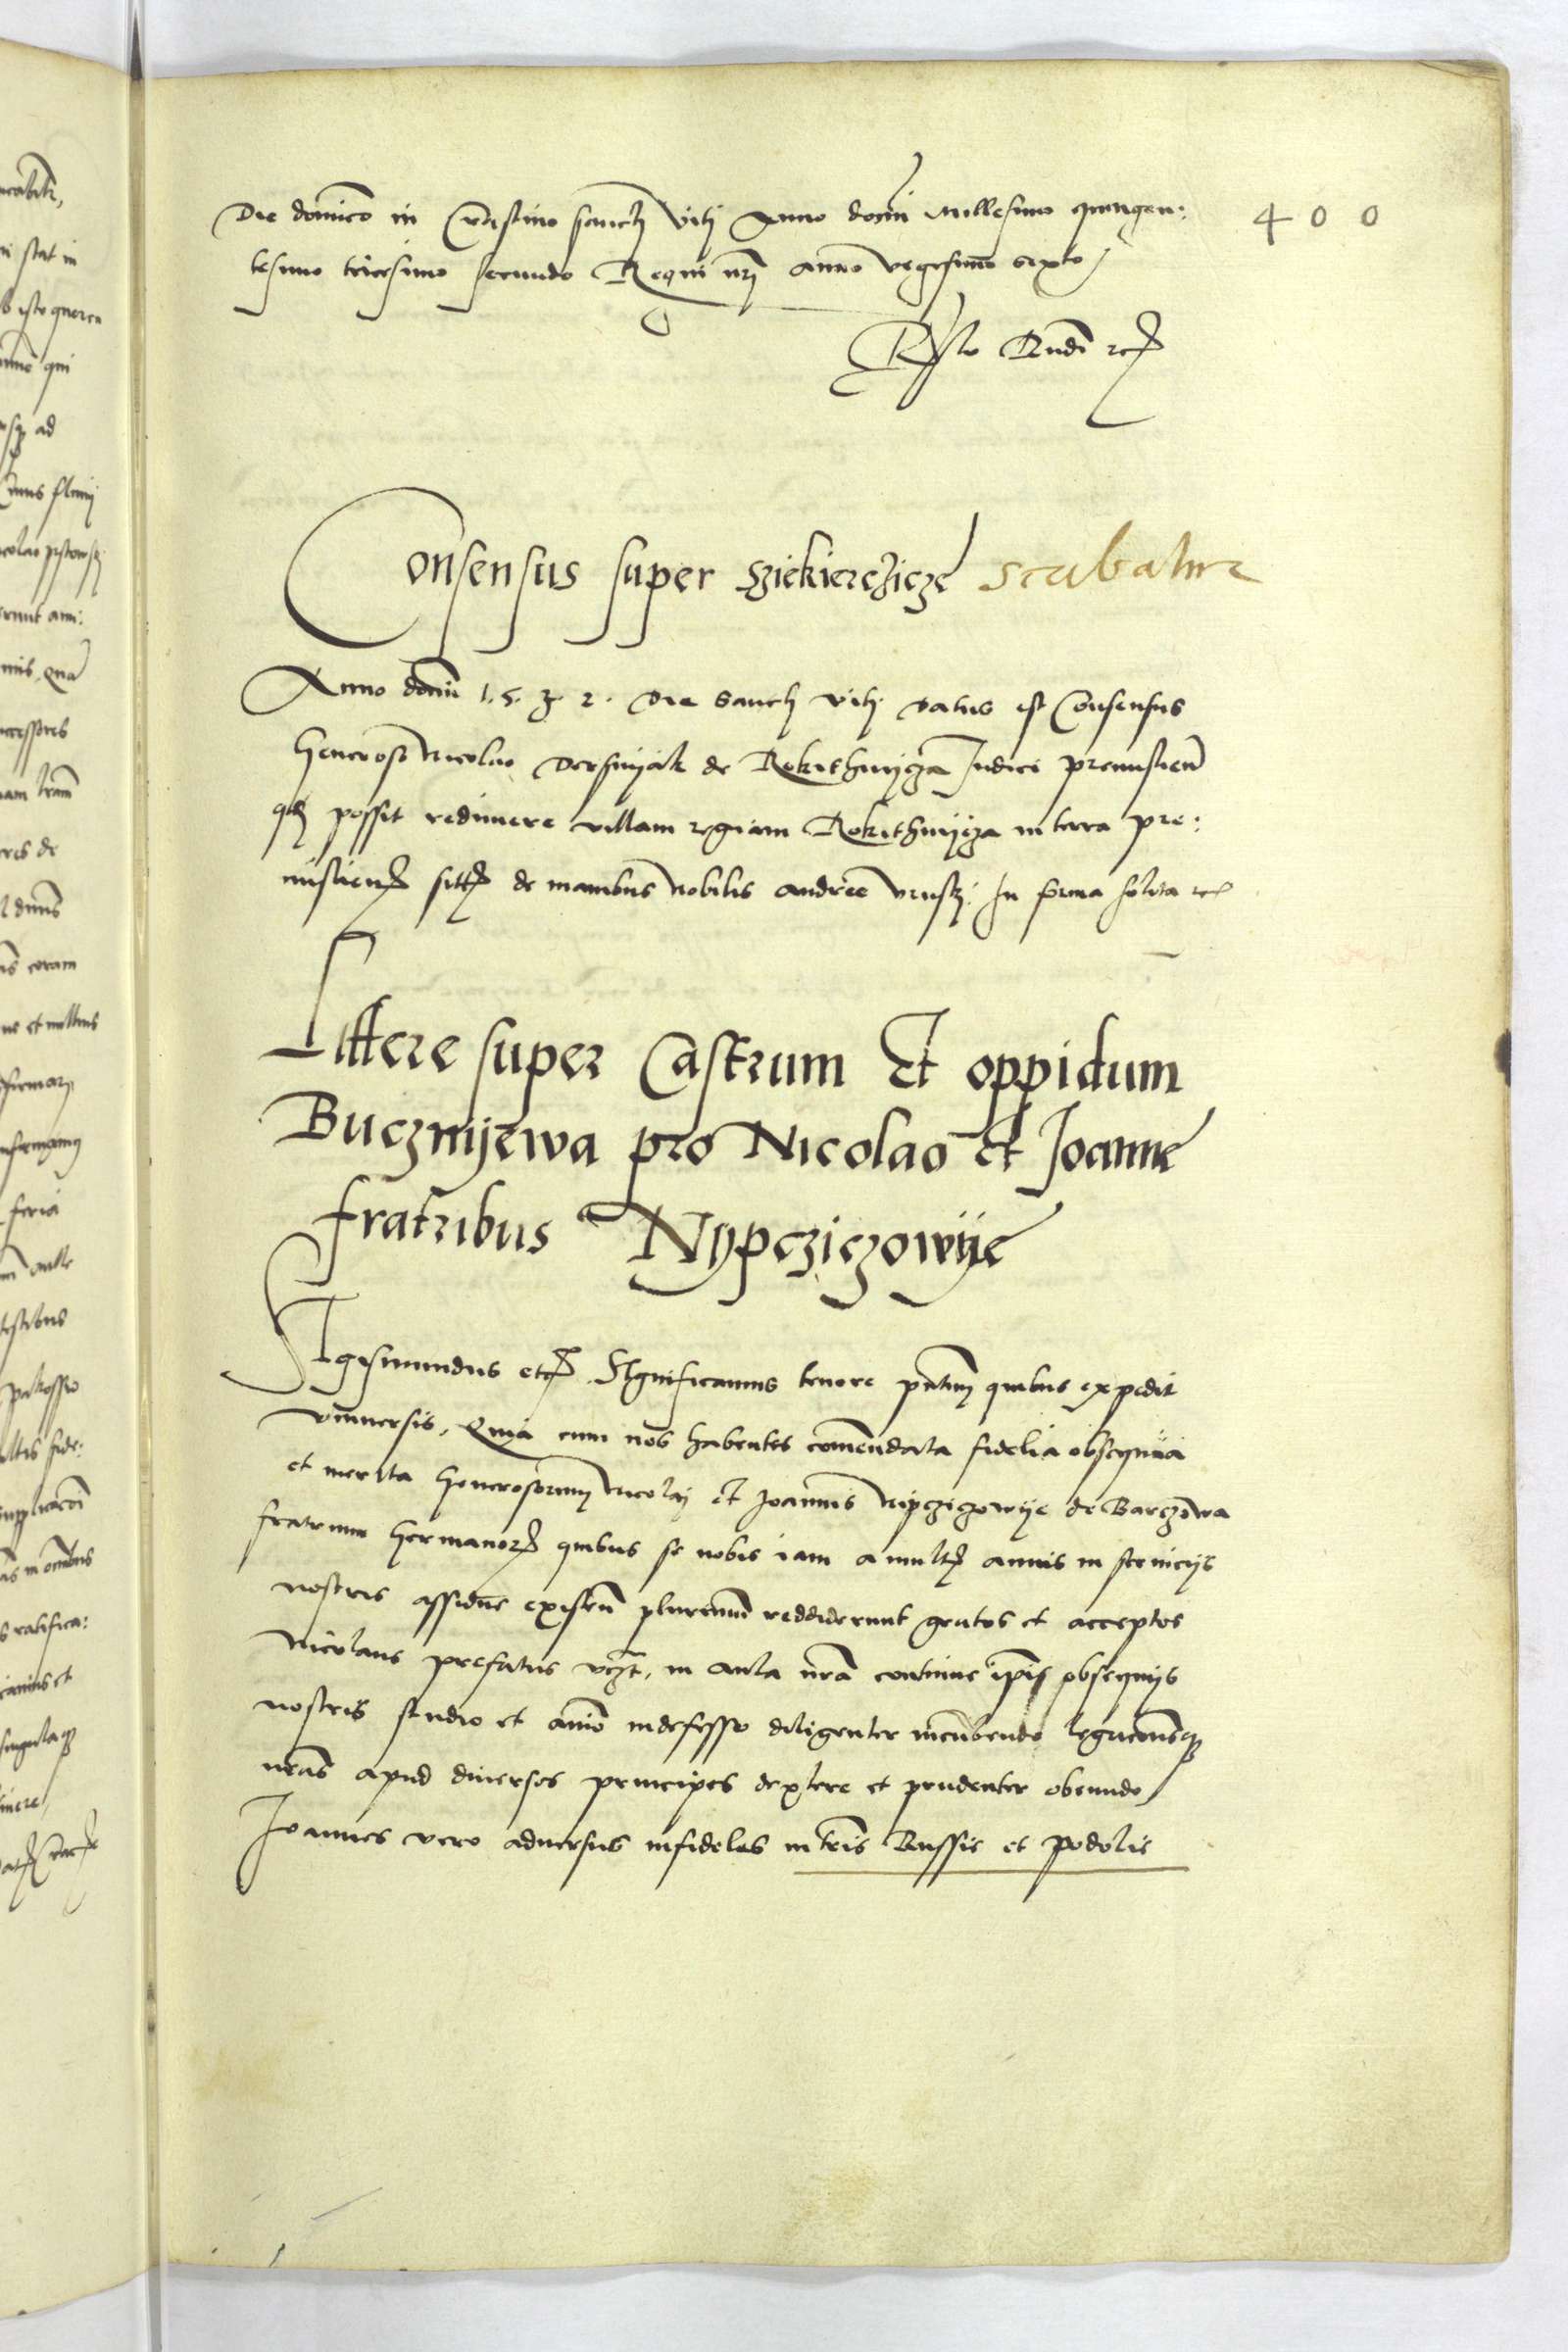 400
Die dominico in Crastino sancti Viti Anno domini Millesimo quingen:
tesimo tricesimo secundo Regni nri anno vegesimo sexto
Consensus super Sziekierczicze
Anno domini 1.5.3.2. Die Sancti Viti datus est Consensus
Generoso Nicolao Dersnyak de Rokithnycza Judici premislien
qd possit redimere villam regiam Rokithnycza in terra pre:
mislien sitt de manibus Nobilis Andree In forma solita etc
Littere super Castrum Et oppidum
Bucznyewa pro Nicolao et Joanne
fratribus Nypcziczowye
Sigismundus etc Significamus tenore pntium quibus expedit
Vniuersis, Quia cum nos habentes comendata fidelia obsequia
et merita Generosorum Nicolaj et Joannis Nipczyczowye de Barczowa
fratrum Germanor quibus se nobis iam a mult annis in seruicijs
nostris assidue existen plurimum reddiderunt gratos et acceptos
Nicolaus prefatus vczt, in Aula nra continue ipis obsequijs
nostris studio et animo indefesso diligenter incumbendo legacionesq
nras apud diuersos principes dextere et prudenter obeundo
Joannes vero aduersus infideles in tris Russie et Podolie